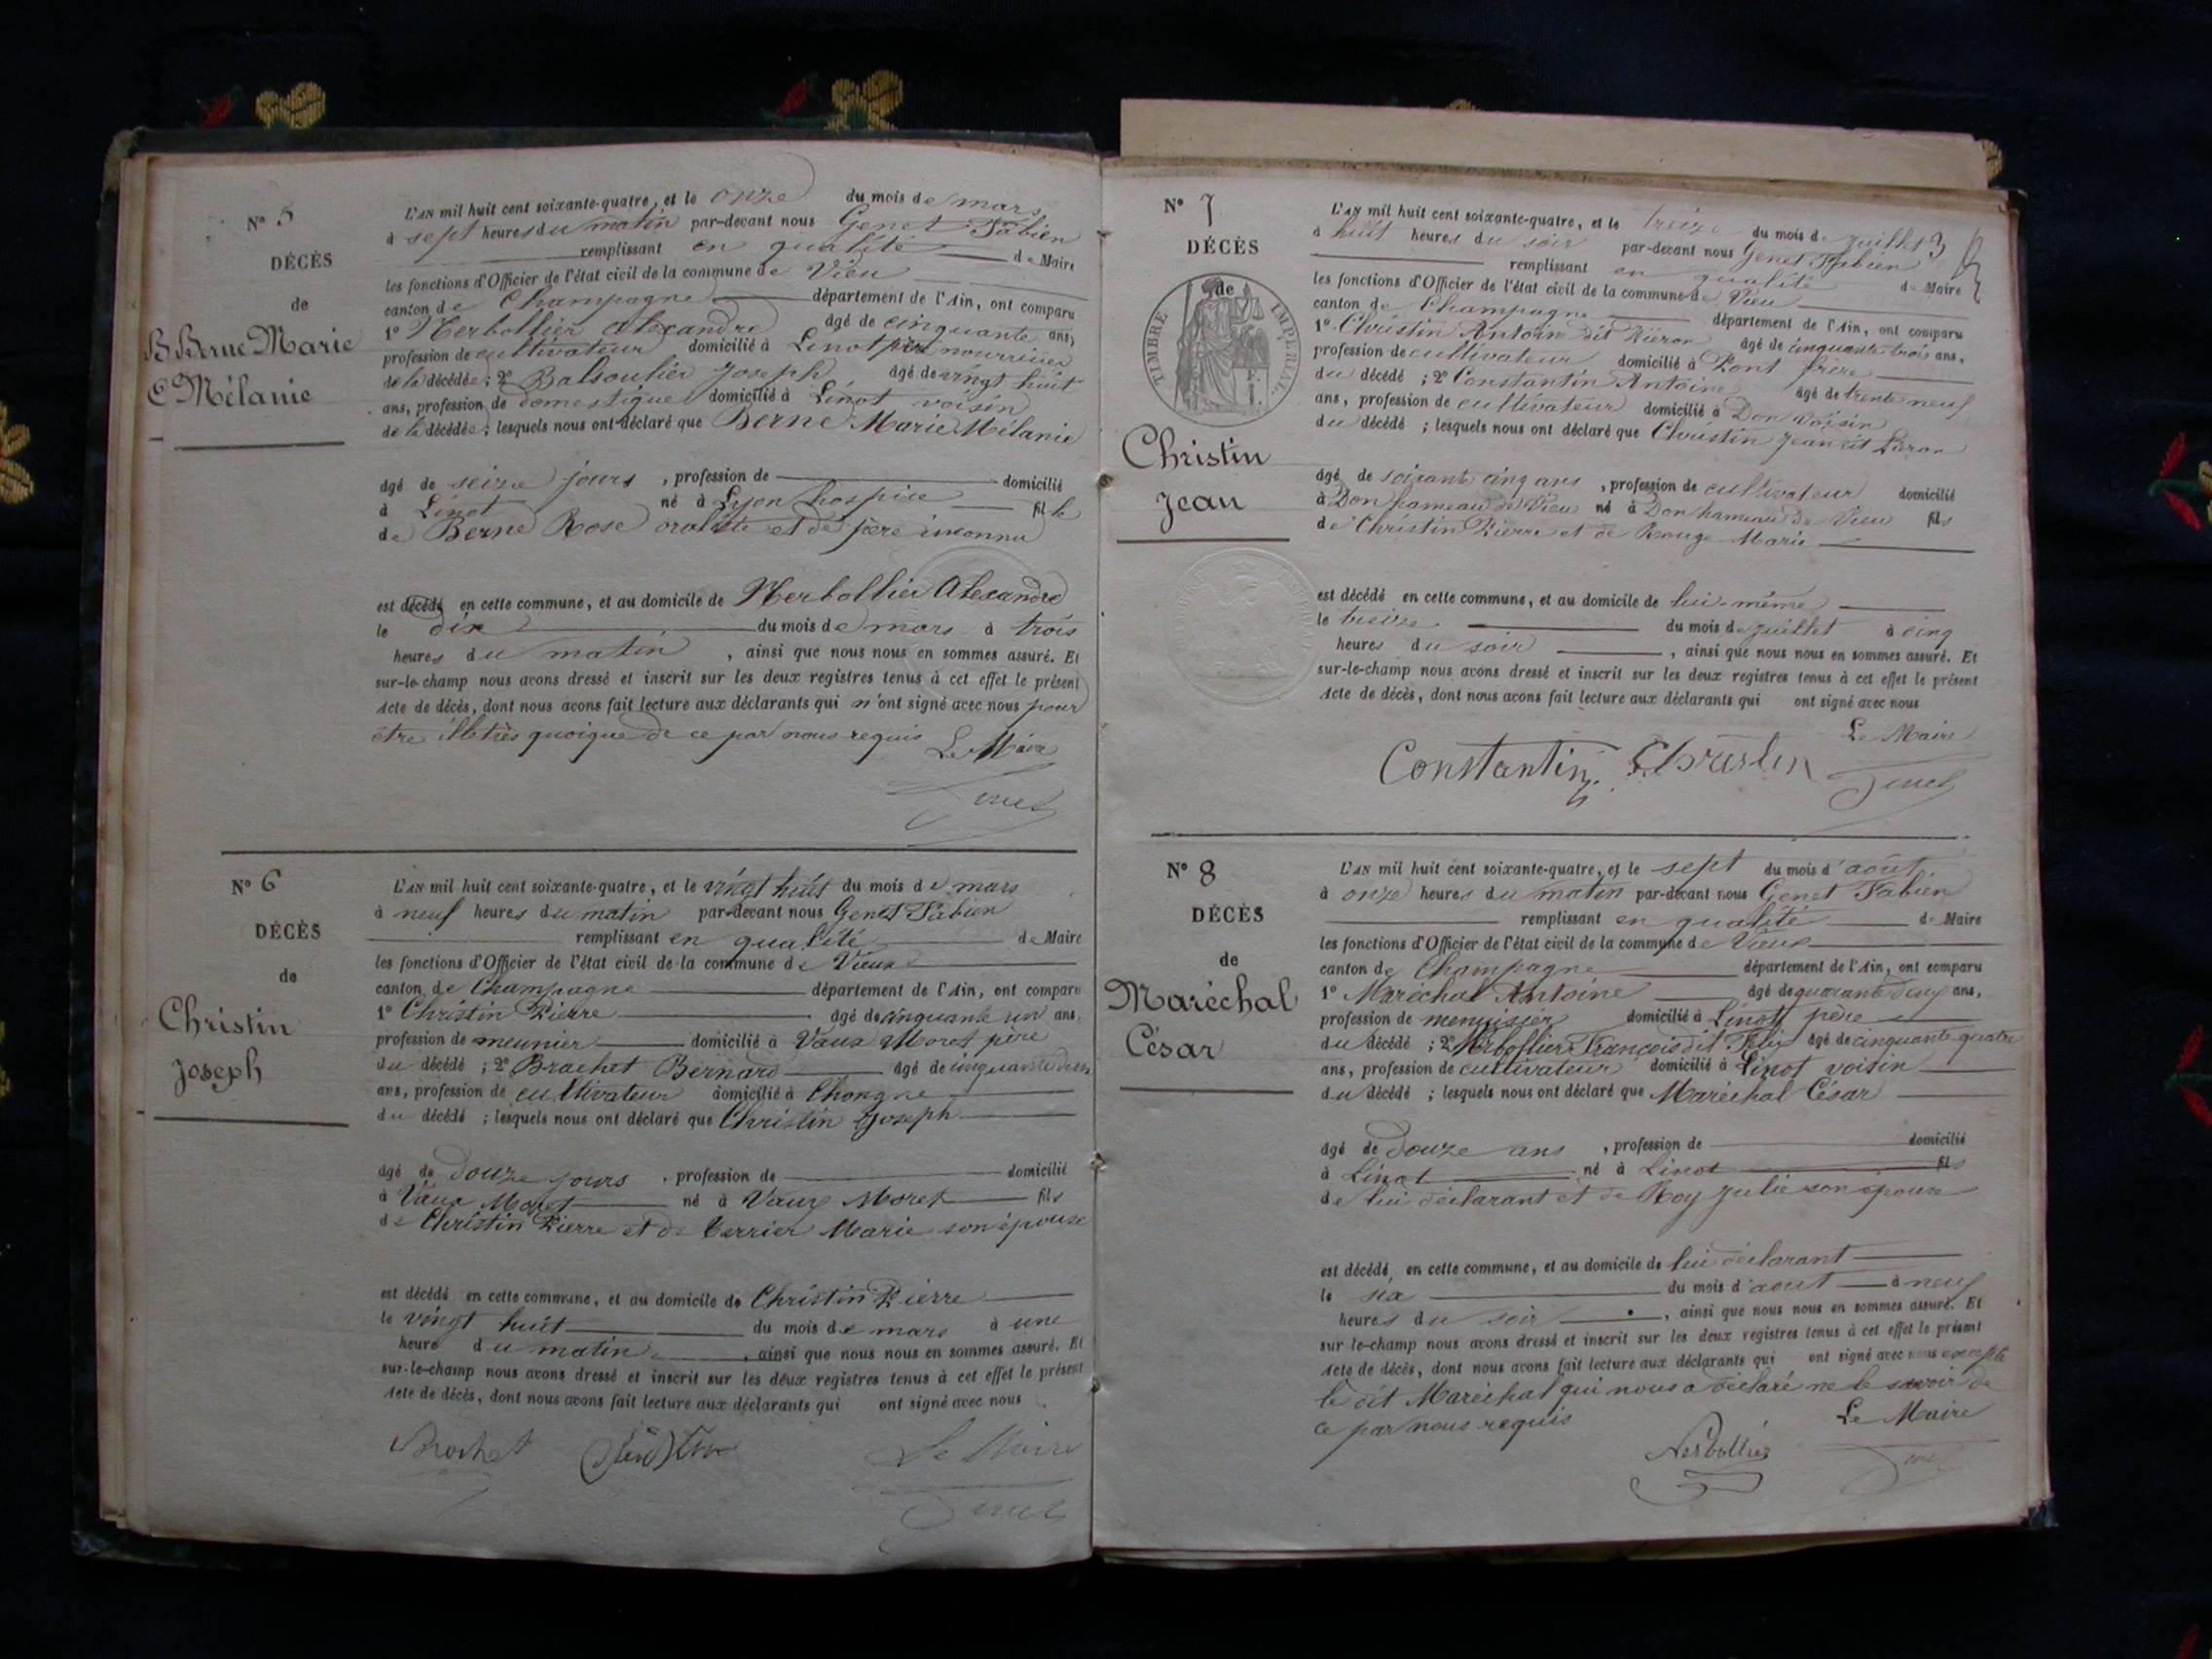 N° 5
DÉCÈS
de
Berne Marie
Mélanie
L'AN mil huit cent soixante-quatre, et le onze du mois de mars
à sept heures du matin par-devant nous Genet Fabien
remplissant en qualité de Maire
les fonctions d'Officier de l'état civil de la commune de Vieu
canton de Champagne département de l'Ain, ont comparu
1° Nerbollier Alexandre âgé de cinquante ans,
profession de cultivateur domicilié à Linot père nourricier
de la décédée ; 2° Balsoulier Joseph âgé de vingt huit
ans, profession de domestique domicilié à Linot voisin
de la décédée ; lesquels nous ont déclaré que Berne Marie Mélanie
âgé de seize jours , profession de domicilié
à Linot né à Lyon hospice fille
de Berne Rose et de père inconnu
est décédé en cette commune, et au domicile de Nerbollier Alexandre
le dix du mois de mars à trois
heures du matin , ainsi que nous nous en sommes assuré. Et
sur-le-champ nous avons dressé et inscrit sur les deux registres tenus à cet effet le présent
Acte de décès, dont nous avons fait lecture aux déclarants qui n'ont signé avec nous pour
être illetrés quoique de ce par nous requis Le Maire
Genet
N° 6
DÉCÈS
de
Christin
Joseph
L'AN mil huit cent soixante-quatre, et le vingt huit du mois de mars
à neuf heures du matin par-devant nous Genet Fabien
remplissant en qualité de Maire
les fonctions d'Officier de l'état civil de la commune de Vieux
canton de Champagne département de l'Ain, ont comparu
1° Christin Pierre âgé de cinquante un ans,
profession de meunier domicilié à Vaux Moret père
du décédé ; 2° Brachet Bernard âgé de cinquante deux
ans, profession de cultivateur domicilié à Chongne
du décédé ; lesquels nous ont déclaré que Christin Joseph
âgé de douze jours , profession de domicilié
à Vaux Moret né à Vaux Moret fils
de Christin Pierre et de Marie son épouse
est décédé en cette commune, et au domicile de Christin Pierre
le vingt huit du mois de mars à une
heure du matin , ainsi que nous nous en sommes assuré. Et
sur-le-champ nous avons dressé et inscrit sur les deux registres tenus à cet effet le présent
Acte de décès, dont nous avons fait lecture aux déclarants qui ont signé avec nous
Brachet Christin Le Maire
Genet
N° 7
DÉCÈS
de
TIMBRE IMPÉRIAL
Christin
Jean
L'AN mil huit cent soixante-quatre, et le treize du mois de juillet
à huit heures du soir par-devant nous Genet Fabien
remplissant en qualité de Maire
les fonctions d'Officier de l'état civil de la commune de Vieu
canton de Champagne département de l'Ain, ont comparu
1° Christin Antoine dit Piéron âgé de cinquante trois ans,
profession de cultivateur domicilié à Pont frère
du décédé ; 2° Constantin Antoine âgé de trente neuf
ans, profession de cultivateur domicilié à Don voisin
du décédé ; lesquels nous ont déclaré que Christin Jean dit Pieron
âgé de soixante cinq ans , profession de cultivateur domicilié
à Don hameau de Vieu né à Don hameau de Vieu fils
de Christin Pierre et de Rouge Marie
est décédé en cette commune, et au domicile de lui-même
le treize du mois de juillet à cinq
heures du soir , ainsi que nous nous en sommes assuré. Et
sur-le-champ nous avons dressé et inscrit sur les deux registres tenus à cet effet le présent
Acte de décès, dont nous avons fait lecture aux déclarants qui ont signé avec nous
Le Maire
Constantin Christin Genet
N° 8
DÉCÈS
de
Maréchal
César
L'AN mil huit cent soixante-quatre, et le sept du mois d'août
à onze heures du matin par-devant nous Genet Fabien
remplissant en qualité de Maire
les fonctions d'Officier de l'état civil de la commune de Vieux
canton de Champagne département de l'Ain, ont comparu
1° Maréchal Antoine âgé de quarante deux ans,
profession de menuisier domicilié à Linot père
du décédé ; 2° Nerbollier François dit Félix âgé de cinquante quatre
ans, profession de cultivateur domicilié à Linot voisin
du décédé ; lesquels nous ont déclaré que Maréchal César
âgé de douze ans , profession de domicilié
à Linot né à Linot fils
de lui déclarant et de Roy Julie son épouse
est décédé en cette commune, et au domicile de lui déclarant
le six du mois d'aout à neuf
heures du soir , ainsi que nous nous en sommes assuré. Et
sur-le-champ nous avons dressé et inscrit sur les deux registres tenus à cet effet le présent
Acte de décès, dont nous avons fait lecture aux déclarants qui ont signé avec nous excepté
le dit Maréchal qui nous a déclaré ne le savoir de
ce par nous requis Le Maire
Nerbollier Genet